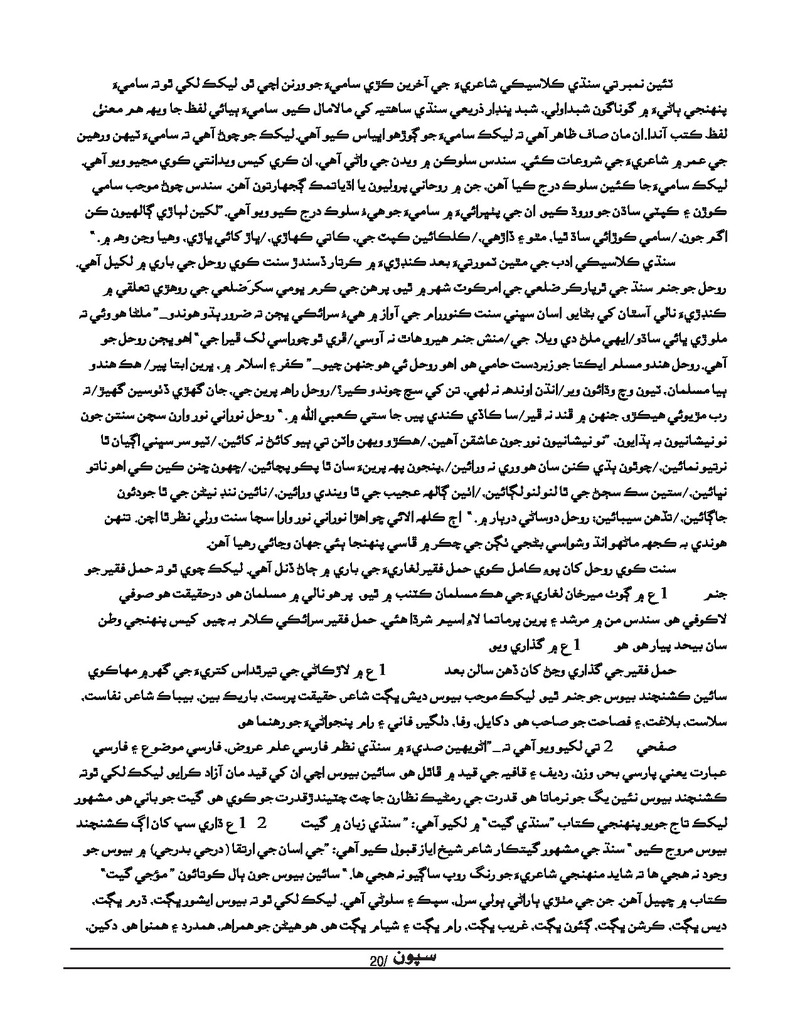 ٽئين نمبر تي سنڌي ڪلاسيڪي شاعريءَ جي آخرين ڪڙي ساميءَ جو ورنن اچي ٿو. ليکڪ لکي ٿو ته ساميءَ
پنهنجي ٻاڻيءَ ۾ گوناگون شبداولي، شبد ڀنڊار ذريعي سنڌي ساهتيه کي مالامال ڪيو. ساميءَ ٻيائي لفظ جا ويهه هم معنيٰ
لفظ ڪتب آندا.ان مان صاف ظاهر آهي ته ليکڪ ساميءَ جو ڳوڙهو اڀياس ڪيو آهي.ليکڪ جو چوڻ آهي ته ساميءَ ٽيهن ورهين
جي عمر ۾ شاعريءَ جي شروعات ڪئي. سندس سلوڪن ۾ ويدن جي واڻي آهي، ان ڪري کيس ويدانتي ڪوي مڃيو ويو آهي.
ليکڪ ساميءَ جا ڪئين سلوڪ درج ڪيا آهن، جن ۾ روحاني پروليون يا اڌياتمڪ ڳجهارتون آهن. سندس چوڻ موجب سامي
ڪوڙن ۽ ڪپٽي ساڌن جو وروڌ ڪيو. ان جي پٺڀرائيءَ ۾ ساميءَ جو هيءُ سلوڪ درج ڪيو ويو آهي.”لکين لٻاڙي ڳالهيون ڪن
اگم جون،/سامي ڪوڙائي ساڌ ٿيا، مٿو ۽ ڏاڙهي،/ڪلڪائين ڪپٽ جي، ڪاتي ڪهاڙي،/ڀاڙ کائي ڀاڙي، وهيا وڃن وهه ۾.“
سنڌي ڪلاسيڪي ادب جي مٿين ٽمورتيءَ بعد ڪنڊڙيءَ ۾ ڪرتار ڏسندڙ سنت ڪوي روحل جي باري ۾ لکيل آهي.
روحل جو جنم سنڌ جي ٿرپارڪر ضلعي جي امرڪوٽ شهر ۾ ٿيو. پر هن جي ڪرم ڀومي سکرَ ضلعي جي روهڙي تعلقي ۾
ڪنڊڙيءَ نالي آسٿان کي بڻايو. اسان سڀني سنت ڪنوررام جي آواز ۾ هيءُ سرائڪي ڀڄن ته ضرور ٻڌو هوندو_” ملڻا هو وئي ته
ملو ڙي ڀائي ساڌو/ايهي ملڻ دي ويلا، جي/منش جنم هيرو هاٿ نه آوسي/ڦري ٿو چوراسي لک ڦيرا جي“ اهو ڀڄن روحل جو
آهي. روحل هندو مسلم ايڪتا جو زبردست حامي هو. اهو روحل ئي هو جنهن چيو_” ڪفر ۽ اسلام ۾ ، ڀرين ابتا پير/ هڪ هندو
ٻيا مسلمان، ٽيون وچ وڌائون وير/انڌن اونڌهه نه لهي، تن کي سچ چوندو ڪير؟/روحل راهه پرين جي، جان گهڙي ڏٺوسين گهيڙ/ته
رب مڙيوئي هيڪڙو، جنهن ۾ ڦند نه ڦير/سا ڪاڏي ڪندي پير، جا ستي ڪعبي الله ۾.“ روحل نوراني نور وارن سچن سنتن جون
نو نيشانيون به ٻڌايون، ”نو نيشانيون نور جون عاشقن آهين،/هڪڙو ويهن واٽن تي ٻيو کائڻ نه کائين،/ٽيو سر سڀني اڳيان ٿا
نرتيو نمائين،/چوٿون ٻڌي ڪنن سان هو وري نه ورائين/،پنجون پهه پرينءَ سان ٿا پڪو پچائين،/ڇهون ڇنن ڪين ڪي اهو ناتو
نڀائين،/ستين سڪ سڄڻ جي ٿا لنو لنو لڳائين،/اٺين ڳالهه عجيب جي ٿا ويندي ورائين،/نائين ننڊ نيڻن جي ٿا جودئون
جاڳائين،/تڏهن سيبائين؛ روحل دوساڻي دربار ۾.“ اڄ ڪلهه الائي ڇو اهڙا نوراني نور وارا سچا سنت ورلي نظر ٿا اچن. تنهن
هوندي به ڪجهه ماڻهو انڌ وشواسي بڻجي ٺڳن جي چڪر ۾ ڦاسي پنهنجا ٻئي جهان وڃائي رهيا آهن.
سنت ڪوي روحل کان پوءِ ڪامل ڪوي حمل فقير لغاريءَ جي باري ۾ ڄاڻ ڏنل آهي. ليکڪ چوي ٿو ته حمل فقير جو
جنم 1 ع ۾ ڳوٺ ميرخان لغاريءَ جي هڪ مسلمان ڪٽنب ۾ ٿيو. پر هو نالي ۾ مسلمان هو. درحقيقت هو صوفي
لاڪوفي هو. سندس من ۾ مرشد ۽ پرين پرماتما لاءِ اسيم شرڌا هئي. حمل فقير سرائڪي ڪلام به چيو. کيس پنهنجي وطن
سان بيحد پيار هو. هو 1 ع ۾ گذاري ويو.
حمل فقير جي گذاري وڃڻ کان ڏهن سالن بعد 1 ع ۾ لاڙڪاڻي جي تيرٿداس کتريءَ جي گهر ۾ مهاڪوي
سائين ڪشنچند بيوس جو جنم ٿيو. ليکڪ موجب بيوس ديش ڀڳت شاعر، حقيقت پرست، باريڪ بين، بيباڪ شاعر، نفاست،
سلاست، بلاغت،۽ فصاحت جو صاحب هو. دکايل، وفا، دلگير، فاني ۽ رام پنجواڻيءَ جو رهنما هو.
صفحي 2 تي لکيو ويو آهي ته_”اڻويهين صديءَ ۾ سنڌي نظم فارسي علم عروض، فارسي موضوع ۽ فارسي
عبارت يعني پارسي بحر، وزن، رديف ۽ قافيه جي قيد ۾ قاٿل هو. سائين بيوس اچي ان کي قيد مان آزاد ڪرايو. ليکڪ لکي ٿو ته
ڪشنچند بيوس نئين يگ جو نرماتا هو. قدرت جي رمڻيڪ نظارن جا چٽ چٽيندڙقدرت جو ڪوي هو. گيت جو باني هو. مشهور
ليکڪ تاج جويو پنهنجي ڪتاب ”سنڌي گيت“ ۾ لکيو آهي: ”سنڌي زبان ۾ گيت 2 1 ع ڌاري سڀ کان اڳ ڪشنچند
بيوس مروج ڪيو.“ سنڌ جي مشهور گيتڪار شاعر شيخ اياز قبول ڪيو آهي: ”جي اسان جي ارتقا (درجي بدرجي) ۾ بيوس جو
وجود نه هجي ها ته شايد منهنجي شاعريءَ جو رنگ روپ ساڳيو نه هجي ها.“ سائين بيوس جون ٻال ڪوتائون ”موجي گيت“
ڪتاب ۾ ڇپيل آهن. جن جي مٺڙي ٻاراڻي ٻولي سرل، سپڪ ۽ سلوڻي آهي. ليکڪ لکي ٿو ته بيوس ايشور ڀڳت، ڌرم ڀڳت،
ديس ڀڳت، ڪرشن ڀڳت، ڳئون ڀڳت، غريب ڀڳت، رام ڀڳت ۽ شيام ڀڳت هو. هو هيڻن جو همراهه، همدرد ۽ همنوا هو. دکين،
سپون /20